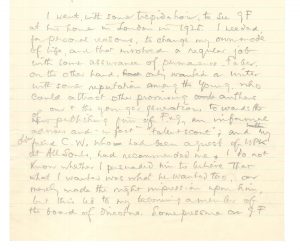 I went, with some trepidation, to see GF
at his home in London in 1925. I needed,
for personal reasons, to change my own mode
of life, and that involved a regular job
with some assurance of permanence. Faber,
on the other hand, only wanted a writer
with some reputation among the young, who
could attract other promising authors
of the younger generation towards the
new publishing firm of F&G, an informal
adviser and in fact "talent scout"; and my
friend C.W. who had been a guest of
at All Souls, had recommended me. I do not
know whether I persuaded him to believe that
what I wanted was what he wanted too, or
merely made the right impression upon him,
but this led to my becoming a member of
the board of directors. Some persons on GF